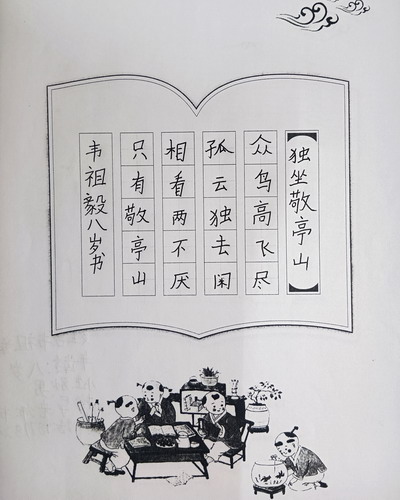 独坐敬亭山
众鸟高飞尽
孤云独去闲
相看两不厌
只有敬亭山
韦祖毅八岁书